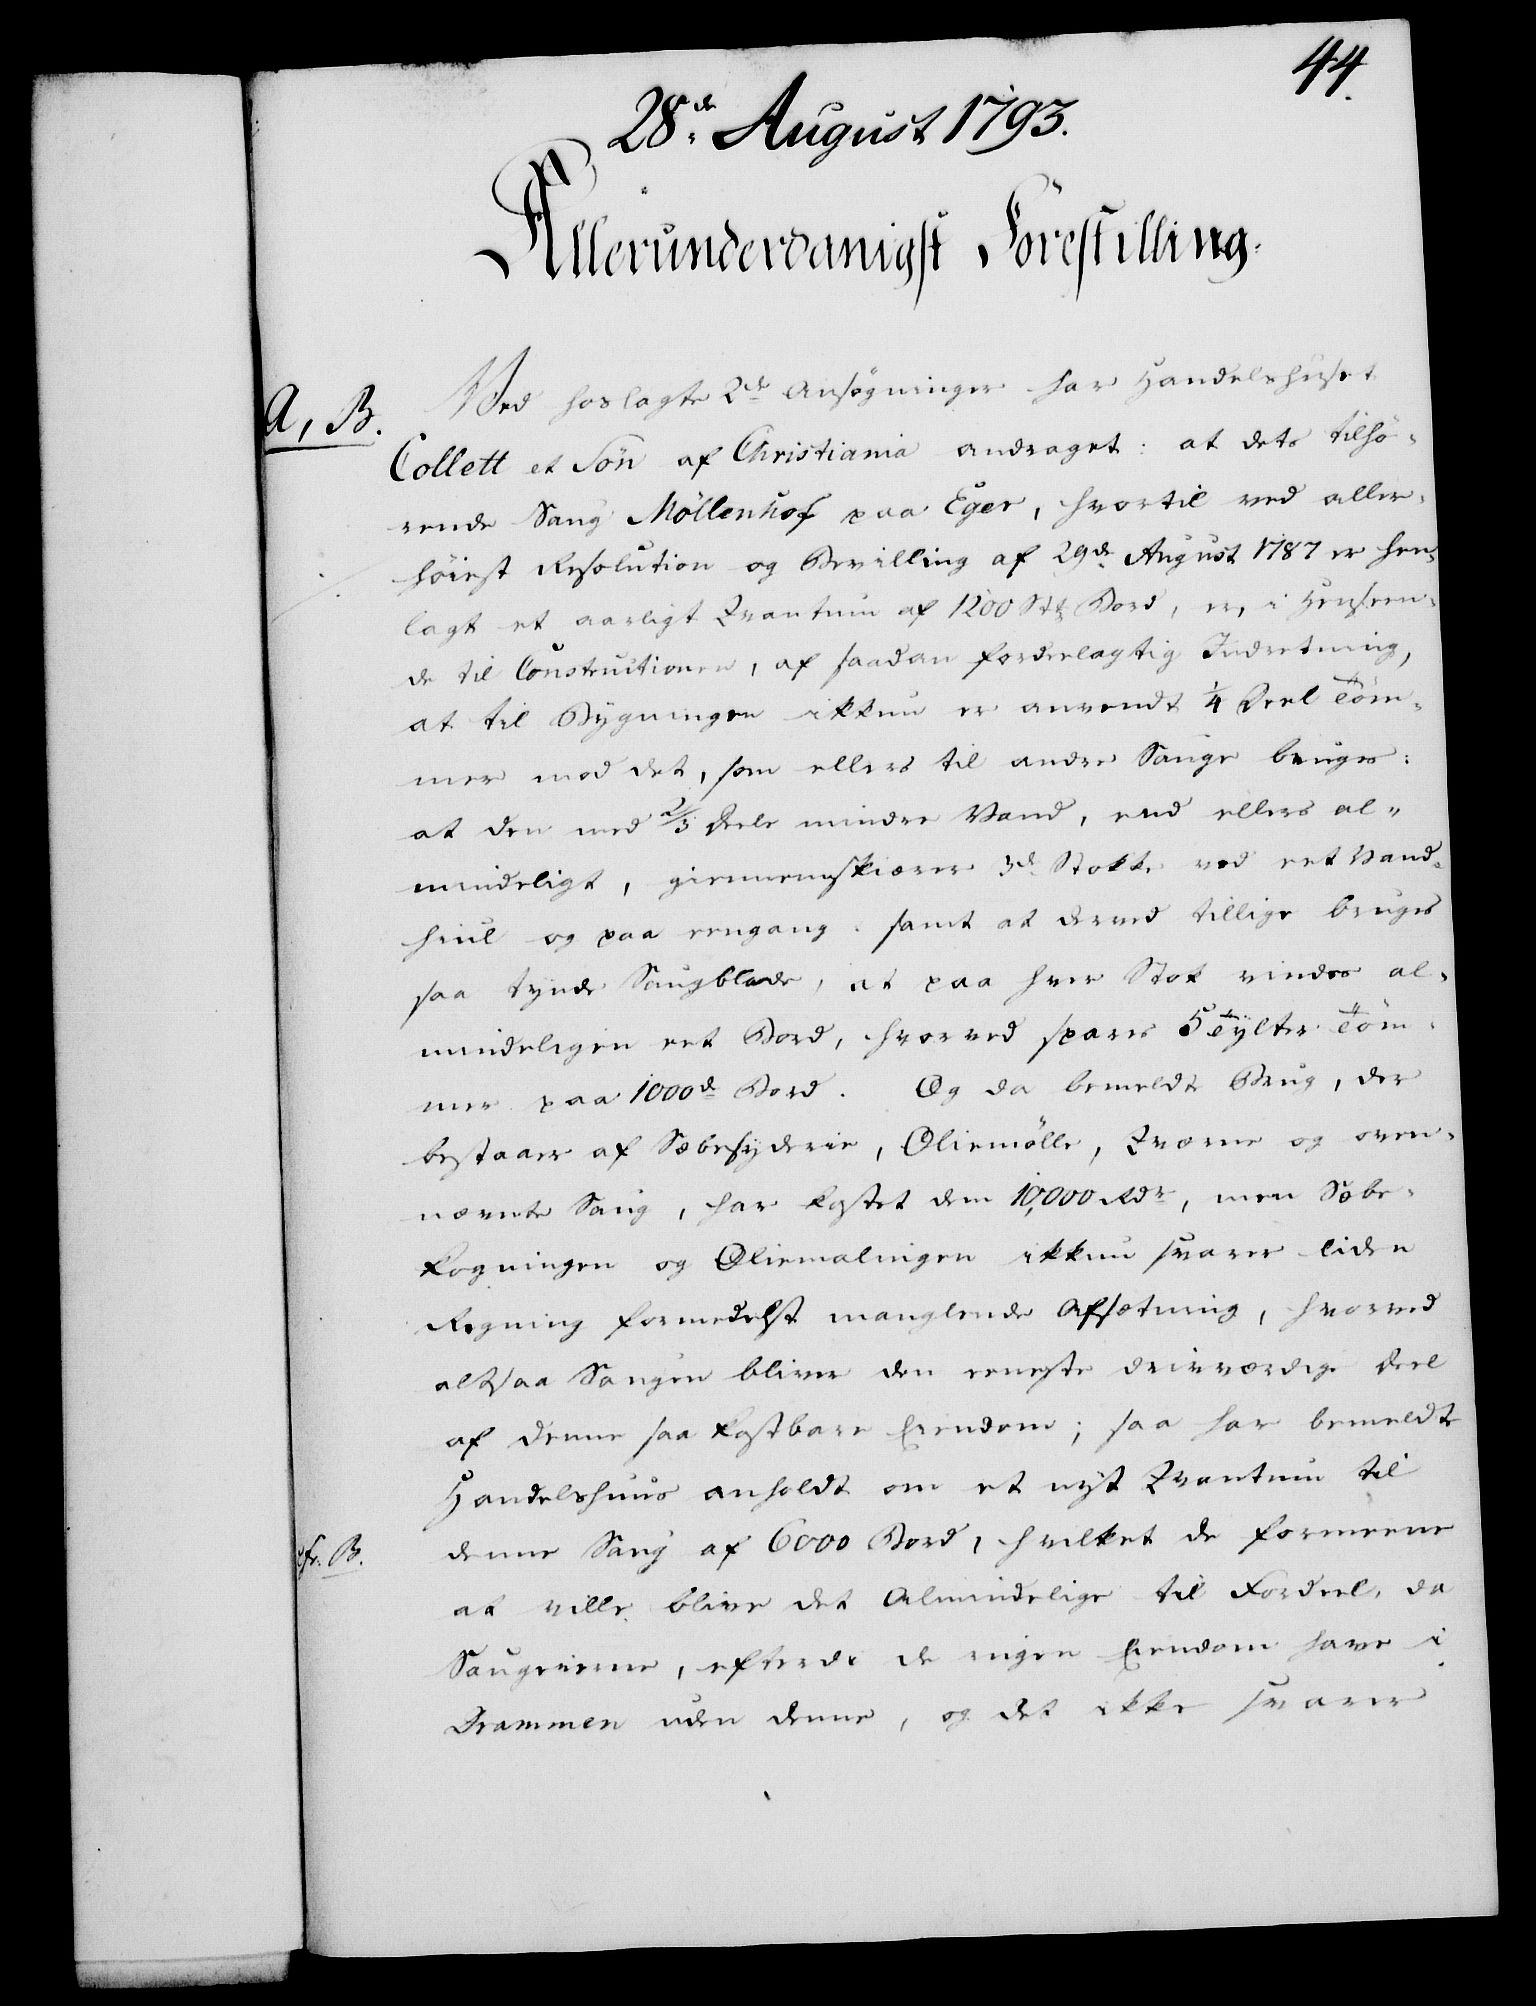 44.
28de August 1793.
Allerunderdanigst Forestilling.
A, B.
Ved hoslagte 2de Ansøgninger har Handelshuset
Collett et Søn af Christiania andraget: at dets tilhø-
rende Saug Möllenhof paa Eger, hvortil ved aller-
høiest Resolution og Bevilling af 29de August 1787 er hen-
lagt et aarligt Qvantum af 1200 Stk Bord, er, i Henseen-
de til Constructionen, af saadan fordeelagtig Indretning,
at til Bygningen ikkun er anvendt 1/4 Deel Tøm-
mer mod det, som ellers til andre Sauge bruges:
at den med 2/3 Deele mindre Vand, end ellers al-
mindeligt, giennemskiærer 3de Stokke ved eet Vand-
hiul og paa eengang: samt at derved tillige bruges
saa tynde Saugblade, at paa hver Stok vindes al-
mindeligen eet Bord, hvorved spares 5 Tylter Tøm-
mer paa 1000de Bord. Og da bemeldte Brug, der
bestaaer af Sæbesyderie, Oliemølle, Qværne og oven-
nævnte Saug, har kostet dem 10,000 Rdr, men Sæbe-
kogningen og Oliemalingen ikkun svarer liden
Regning formedelst manglende Afsætning, hvorved
altsaa Saugen bliver den eeneste drivværdige Deel
af denne saa kostbare Eiendom; saa har bemeldte
Handelshuus anholdt om et nyt Qvantum til
cfr. B.
denne Saug af 6000 Bord, hvilket de formeene
at ville blive det Almindelige til Fordeel, da
Saugeierne, efterdi de ingen Eiendom have i
Drammen uden denne, og det ikke svarer